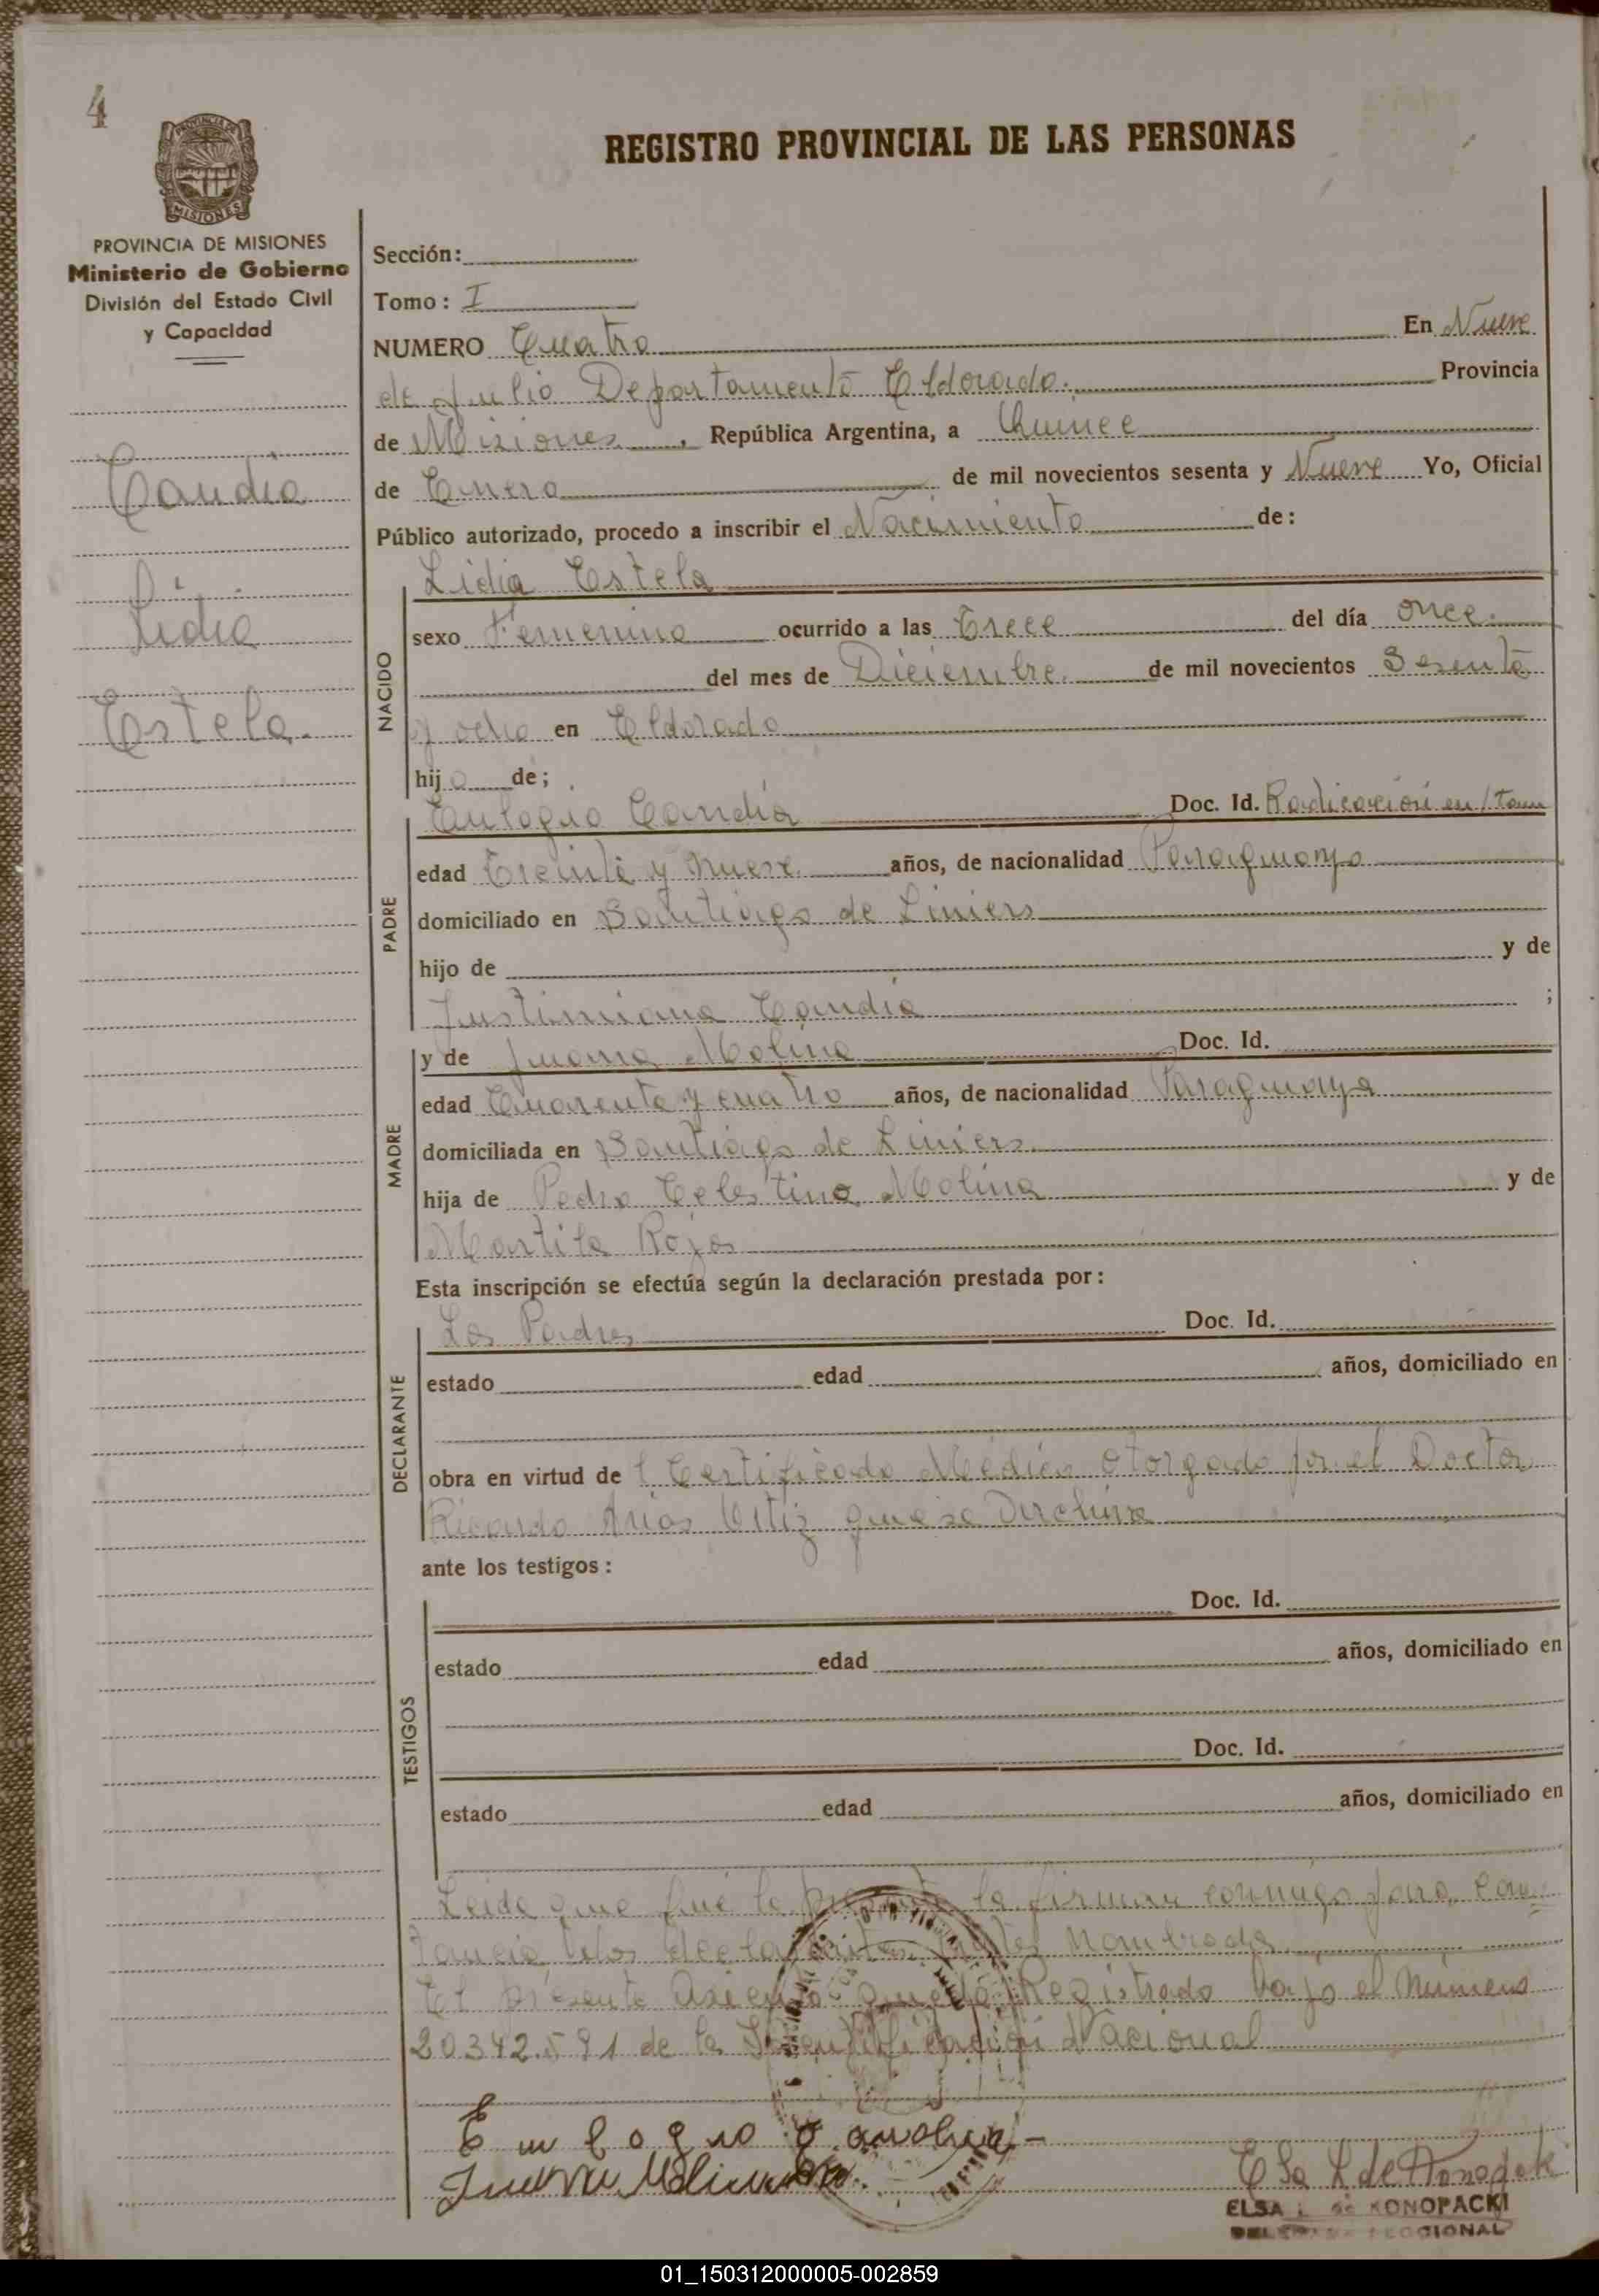 4
REGISTRO PROVINCIAL DE LAS PERSONAS
PROVINCIA DE
MISIONES
PROVINCIA DE MISIONES
Ministerio de Gobierno
División del Estado Civil
y Capacidad
Candia
Lidia
Estela.
Sección:
Tomo: I
NUMERO Cuatro En Nueve
de Julio Departamento Eldorado. Provincia
de Misiones, República Argentina, a Quince
de Enero de mil novecientos sesenta y Nueve Yo, Oficial
Público autorizado, procedo a inscribir el Nacimiento de:
NACIDO
Lidia Estela
sexo Femenino ocurrido a las Trece del día once.
del mes de Diciembre. de mil novecientos Sesenta
y ocho en Eldorado
hija de;
PADRE
Eulogio Candia Doc. Id. Radicación en
edad Treinta y nueve años, de nacionalidad Paraguayo
domiciliado en Santiago de Liniers
hijo de y de
Justiniana Candia ;
MADRE
y de Juana Molina Doc. Id.
edad Cuarenta y cuatro años, de nacionalidad Paraguaya
domiciliada en Santiago de Liniers.
hija de Pedro Celestino Molina y de
Rojas
Esta inscripción se efectúa según la declaración prestada por:
DECLARANTE
Los Padres Doc. Id.
estado edad años, domiciliado en
obra en virtud de l Certificado Médico otorgado por el Doctor
Ricardo Arias Ortiz que se
ante los testigos:
TESTIGOS
Doc. Id.
estado edad años, domiciliado en
Doc. Id.
estado edad años, domiciliado en
Leida que fué la presente la firman conmigo para cons=
tancia los declarantes antes nombrados
El presente asiento quedó Registrado bajo el número
20342.591 de la Identificación Nacional
Eulogio Candia -
Juana Molina
Elsa L de Konopacki
ELSA L. de KONOPACKI
SECCIONAL
01_150312000005-002859